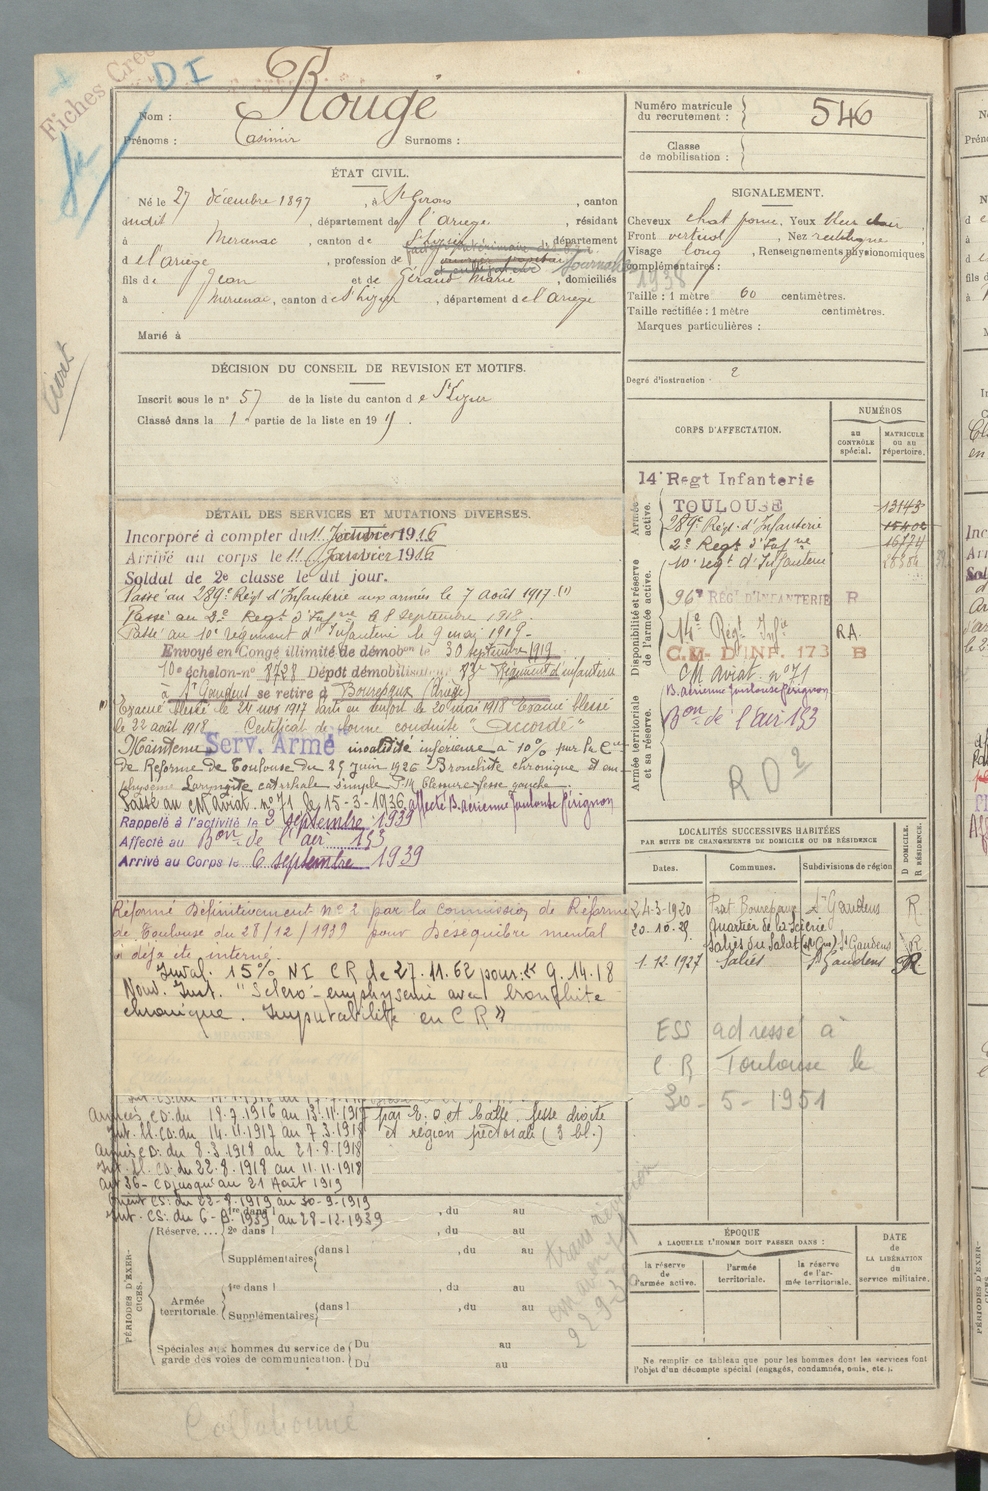 Fiches
DI
Nom : Rougé
Prénoms : Casimir Surnoms :
Numéro matricule du recrutement : 546
Classe de mobilisation :
ÉTAT CIVIL.
Né le 27 décembre 1897, à St Girons, canton
dudit, département de l'Ariège, résidant
à Mercenac, canton de St Lizier, département
d e l'Ariège, profession de
fils de Jean et de Géraud Marie, domiciliés
à Mercenac, canton de St Lizier, département d e l'Ariège
Marié à
SIGNALEMENT.
Cheveux chat. fonc. Yeux bleu clair
Front vertical, Nez rectiligne
Visage long, Renseignements physionomiques
complémentaires :
1938
Taille : 1 mètre 60 centimètres.
Taille rectifiée : 1 mètre centimètres.
Marques particulières :
Degré d'instruction : 2
DÉCISION DU CONSEIL DE REVISION ET MOTIFS.
Inscrit sous le n° 57 de la liste du canton d e St Lizier
Classé dans la 1 partie de la liste en 19
CORPS D'AFFECTATION.
NUMÉROS
au CONTRÔLE spécial.
MATRICULE ou au répertoire.
Armée active.
14e Regt Infanterie
TOULOUSE 13143
289e Régt d'Infanterie 15402
2e Regt d'Infrie 16774
10e régt d'Infanterie
Disponibilité et réserve de l'armée active.
96e RÉGt D'INFANTERIE R
14e Régt Infie RA.
C.M. D'INF. 173 B
CM aviat. n° 71
B. aérienne Toulouse Pérignon
Bon de l'air 153
Armée territoriale et sa réserve.
R D 2
DÉTAIL DES SERVICES ET MUTATIONS DIVERSES.
Incorporé à compter du 11 Janvier 1916
Arrivé au corps le 11 Janvier 1916
Soldat de 2e classe le dit jour.
Passé au 289e Régt d'Infanterie aux armées le 7 août 1917. (1)
Passé au 2e Regt d'Infie le 8 septembre 1918.
Passé au 10e Régiment d'Infanterie le 9 mai 1919.
Envoyé en Congé illimité de démobon le 30 septembre 1919
10e échelon n° 8728 Dépôt démobilisateur 83e Régiment d'infanterie
à St Gaudens se retire à Bourepaux (Ariège)
(1) Evacué blessé le 24 nov 1917 Parti en renfort le 20 mai 1918 Evacué blessé
le 22 août 1918. Certificat de bonne conduite "Accordé"
Maintenu Serv. Armé invalidité inférieure à 10% par la Con
de Réforme de Toulouse du 25 juin 1926 Bronchite chronique et em-
physème Laryngite catarrhale simple blessure fesse gauche
Passé au CM aviat. n° 71 le 15-3-1936 affecté B. aérienne Toulouse Pérignon
Rappelé à l'activité le 2 septembre 1939
Affecté au Bon de l'air 153
Arrivé au Corps le 6 septembre 1939
Réformé Définitivement n° 2 par la commission de Réforme
de Toulouse du 28/12/1939 pour Déséquilibre mental
a déjà été interné.
Inval. 15% NI CR de 27.11.62 pour : « G. 14.18
Nouv. Inst. "Scléro-emphysème avec bronchite
chronique. Imputabilité en CR »
LOCALITÉS SUCCESSIVES HABITÉES
PAR SUITE DE CHANGEMENTS DE DOMICILE OU DE RÉSIDENCE
Dates. Communes. Subdivisions de région D DOMICILE. R RÉSIDENCE.
24-3-1920 Prat Bourepaux St Gaudens R
20-10-29 Quartier de la Scierie
Salies du Salat (Hte Gne) St Gaudens R
1.12.1927 Saliès St Gaudens R
ESS adressé à
C.R. Toulouse le
30-5-1951
Armées CD : du 19.7.1916 au 13.11.1917
Int. Bl. CD : du 14.11.1917 au 7.3.1918
Armées CD : du 8.3.1918 au 21.8.1918
Int. Bl. CD : du 22.8.1918 au 11.11.1918
Art 36 - CD jusqu'au 21 Août 1919
Orient CS : du 22-8-1919 au 30-9-1919
Int. CS : du 6-9-1939 au 28-12-1939
par E. O et balle. fesse droite
et région pectorale (3 bl.)
PÉRIODES D'EXERCICES.
Réserve.... 1re dans l , du au
2e dans l , du au
Supplémentaires dans l , du au
Armée territoriale. 1re dans l , du au
Supplémentaires dans l , du au
Spéciales aux hommes du service de garde des voies de communication. Du au
Du au
ÉPOQUE
A LAQUELLE L'HOMME DOIT PASSER DANS :
la réserve de l'armée active. l'armée territoriale. la réserve de l'armée territoriale.
DATE DE LA LIBÉRATION du service militaire.
Ne remplir ce tableau que pour les hommes dont les services font
l'objet d'un décompte spécial (engagés, condamnés, omis, etc.).
Collationné